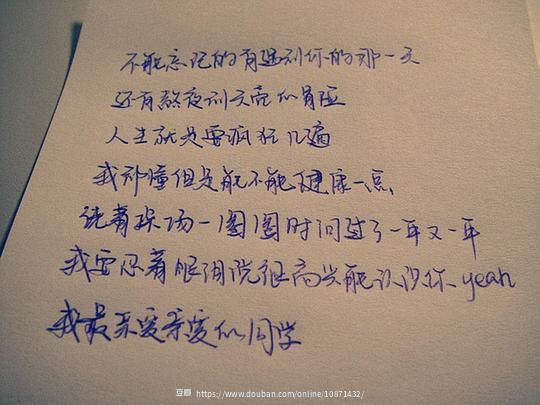 不能忘记的有遇到你的那一天
还有熬夜到天亮的冒险
人生就是要疯狂几遍
我都懂但是能不能健康一点
绕着操场一圈圈时间过了一年又一年
我要忍着眼泪说很高兴能认识你 yeah
我最亲爱亲爱的同学
豆瓣 https://www.douban.com/online/10871432/